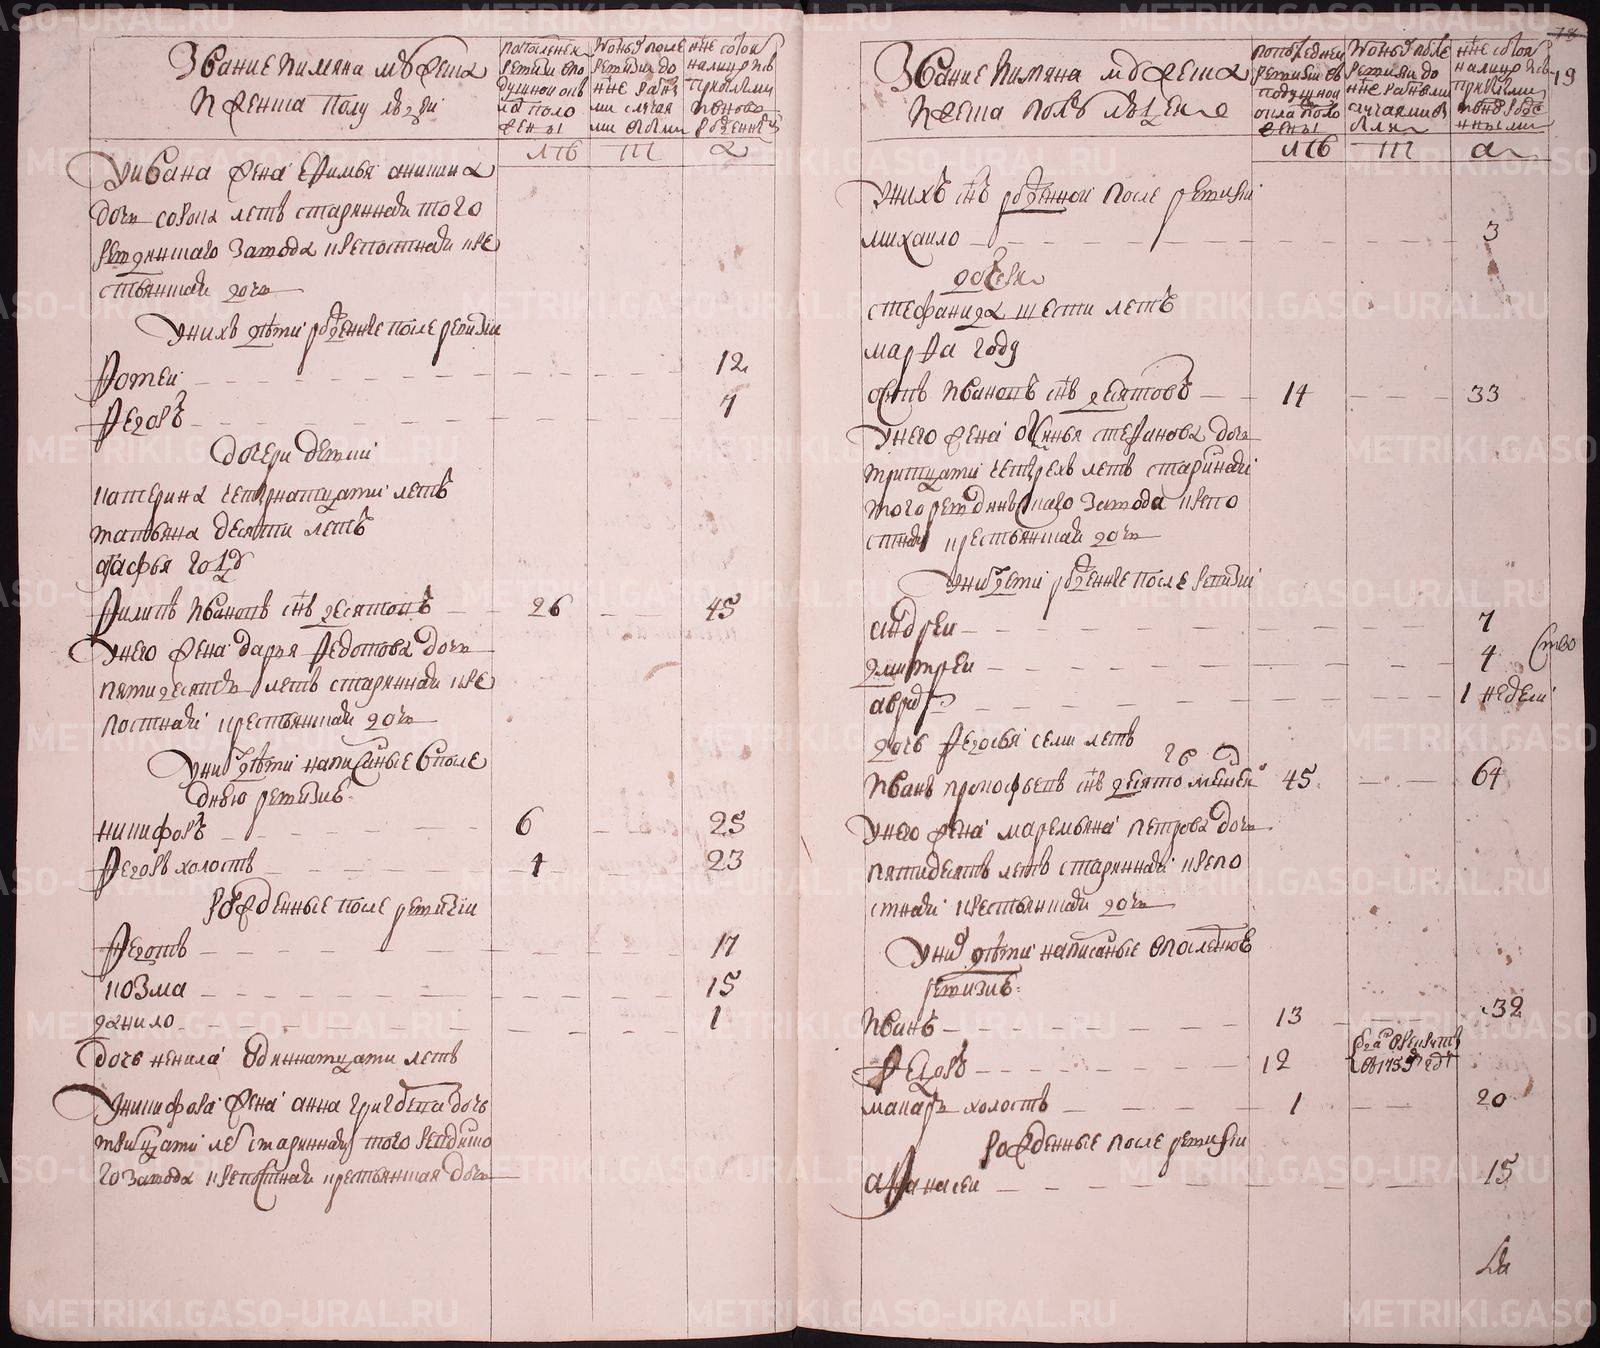 Звание и имяна мужеска
и женска полу людей
Попоследней
ревизии впо
душной окъ
ладъ поло
жены
Изоныхъ после
ревизии до
нне разны
ми случая
ми выбыли
нне состоя
налицо и съ
прибылыми
и внове
рожденней
лѣ
лѣ
Уивана жена ефимья аникина
дочь сорока летъ стариннай того
Ревдинскаго завода крепостнай кре
стьянскай дочь
Унихъ дѣти рожденные после ревизии
Фотеи 12
Федоръ 7
Дочери девки
катерина четырнатцати летъ
татьяна десяти летъ
агафья году
Филипъ Ивановъ снъ десятовъ 26 45
Унего жена дарья федотова дочь
пятидесятъ летъ стариннай кре
постнай крестьянскай дочь
Унихъ дѣти написаные впосле
днюю ревизию
никифоръ 6 25
Федоръ холостъ 4 23
Рожденные после ревизии
Федотъ 17
козма 15
данило 1
дочь ненила одиннатцати летъ
Уникифора жена анна григорьева дочь
тритцати летъ стариннай того Ревдинско
го завода крепостнай крестьянская дочь
Звание и имяна мужеска
и женска полъ людей
Попоследней
ревизии въ
подушной
окладъ поло
жены
Изоныхъ после
ревизии до
нне разными
случаями вы
были
нне состоя
налицо и съ
прибылыми
и внов рожде
нными
19
лѣ
лѣ
Унихъ снъ рожденной после ревизии
михаило 3
дочери
стефанида шести летъ
марфа году
осипъ Ивановъ снъ десятовъ 14 33
Унего жена аксинья стефанова дочь
тритцати четырехъ летъ стариннай
того ревдинскаго завода крепо
стнай крестьянскай дочь
Унихъ дети рожденные после ревизии
андреи 7
дмитреи 4
авраамъ 1 недели
дочь федосья семи летъ
Иванъ прокофьевъ снъ десятовъ 45 64
Унего жена маремьяна петрова дочь
пятидесятъ летъ стариннай крепо
стнай крестьянскай дочь
Унихъ дѣти написаные впоследнюю
ревизию
Иванъ 13 32
Федоръ 12
макаръ холостъ 1 20
Рожденные после ревизии
афанасеи 15